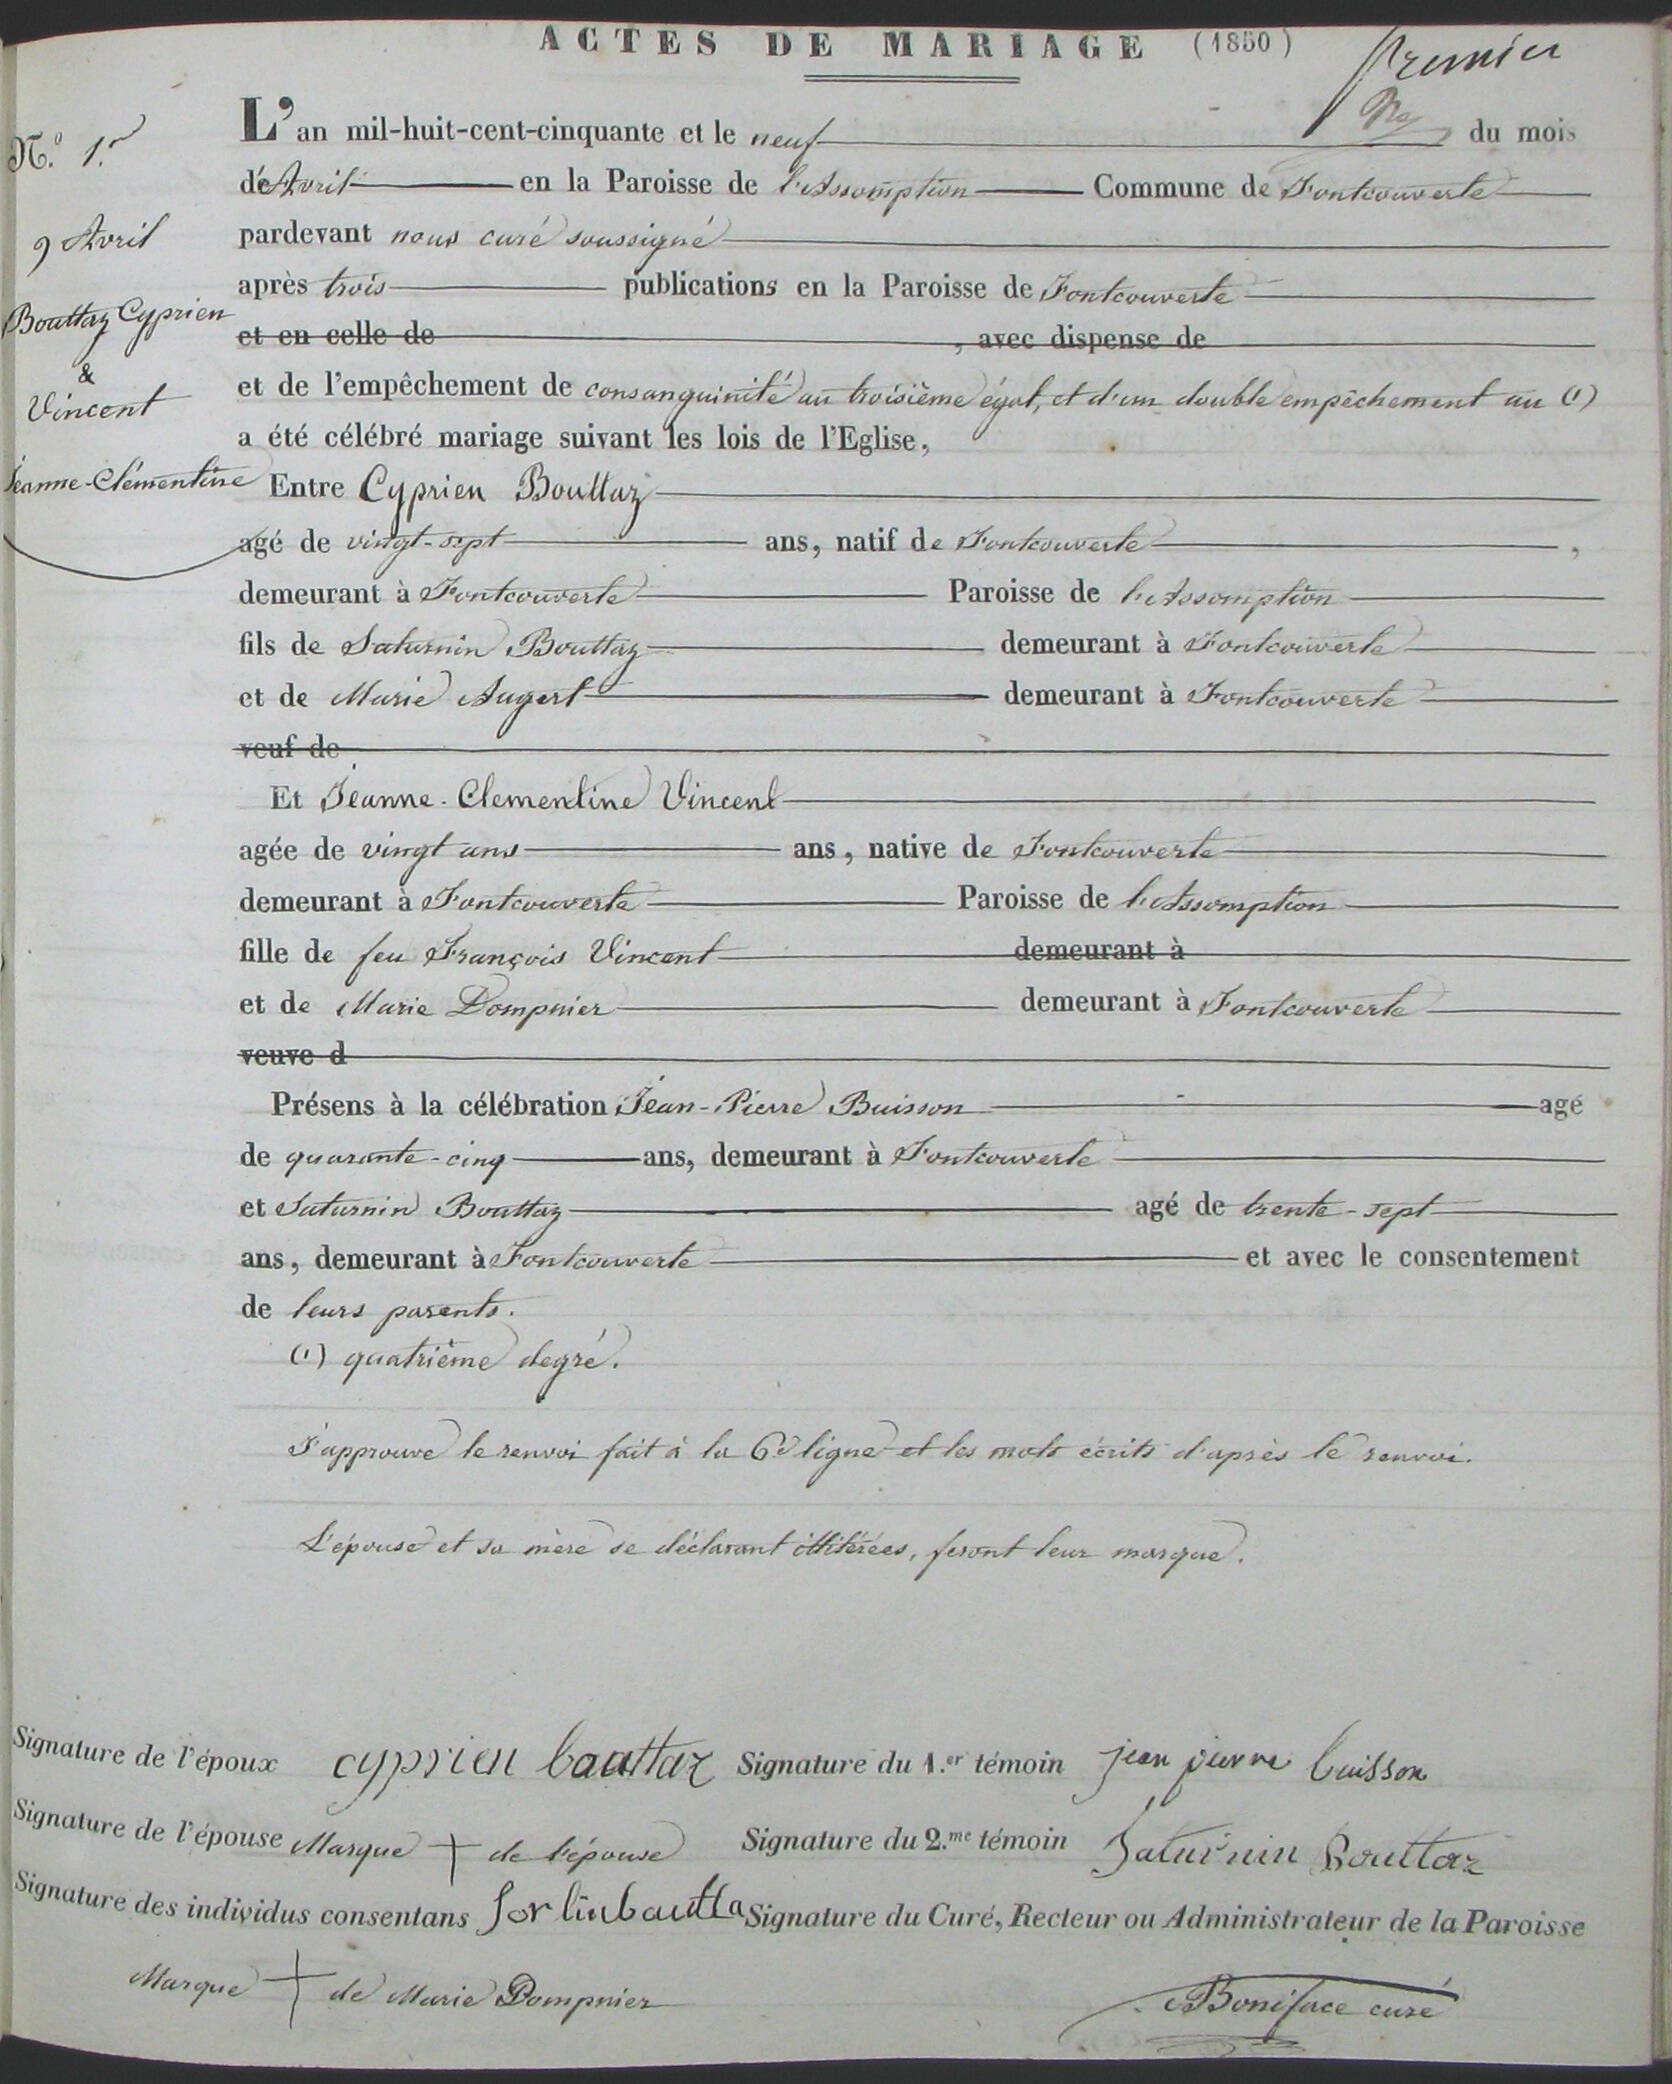 ACTES DE MARIAGE (1850)
Premier
N.º 1.er
9 Avril
Bouttaz Cyprien
&
Vincent
Jeanne-Clémentine
L'an mil-huit-cent-cinquante et le neuf du mois
d'Avril en la Paroisse de l'Assomption Commune de Fontcouverte
pardevant nous curé soussigné
après trois publications en la Paroisse de Fontcouverte
et en celle de , avec dispense de
et de l'empêchement de consanguinité au troisième égal, et d'un double empêchement au (1)
a été célébré mariage suivant les lois de l'Eglise,
Entre Cyprien Bouttaz
agé de vingt-sept ans, natif de Fontcouverte ,
demeurant à Fontcouverte Paroisse de l'Assomption
fils de Saturnin Bouttaz demeurant à Fontcouverte
et de Marie Augert demeurant à Fontcouverte
veuf de
Et Jeanne-Clementine Vincent
agée de vingt ans ans, native de Fontcouverte
demeurant à Fontcouverte Paroisse de l'Assomption
fille de feu François Vincent demeurant à
et de Marie Dompnier demeurant à Fontcouverte
veuve d
Présens à la célébration Jean-Pierre Buisson agé
de quarante-cinq ans, demeurant à Fontcouverte
et Saturnin Bouttaz agé de trente-sept
ans, demeurant à Fontcouverte et avec le consentement
de leurs parents.
(1) quatrième degré.
J'approuve le renvoi fait à la 6e ligne et les mots écrits d'après le renvoi.
L'épouse et sa mère se déclarant illitérées, feront leur marque.
Signature de l'époux cyprien bouttaz Signature du 1.er témoin jean pierre buisson
Signature de l'épouse Marque + de l'épouse Signature du 2.me témoin Saturnin Bouttaz
Signature des individus consentans Sorlin boutta Signature du Curé, Recteur ou Administrateur de la Paroisse
Marque + de Marie Dompnier Boniface curé